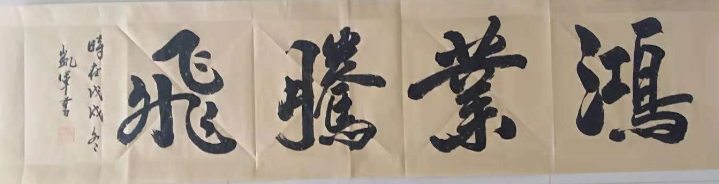 鴻業騰飛
時在戊戌冬
凱軍書